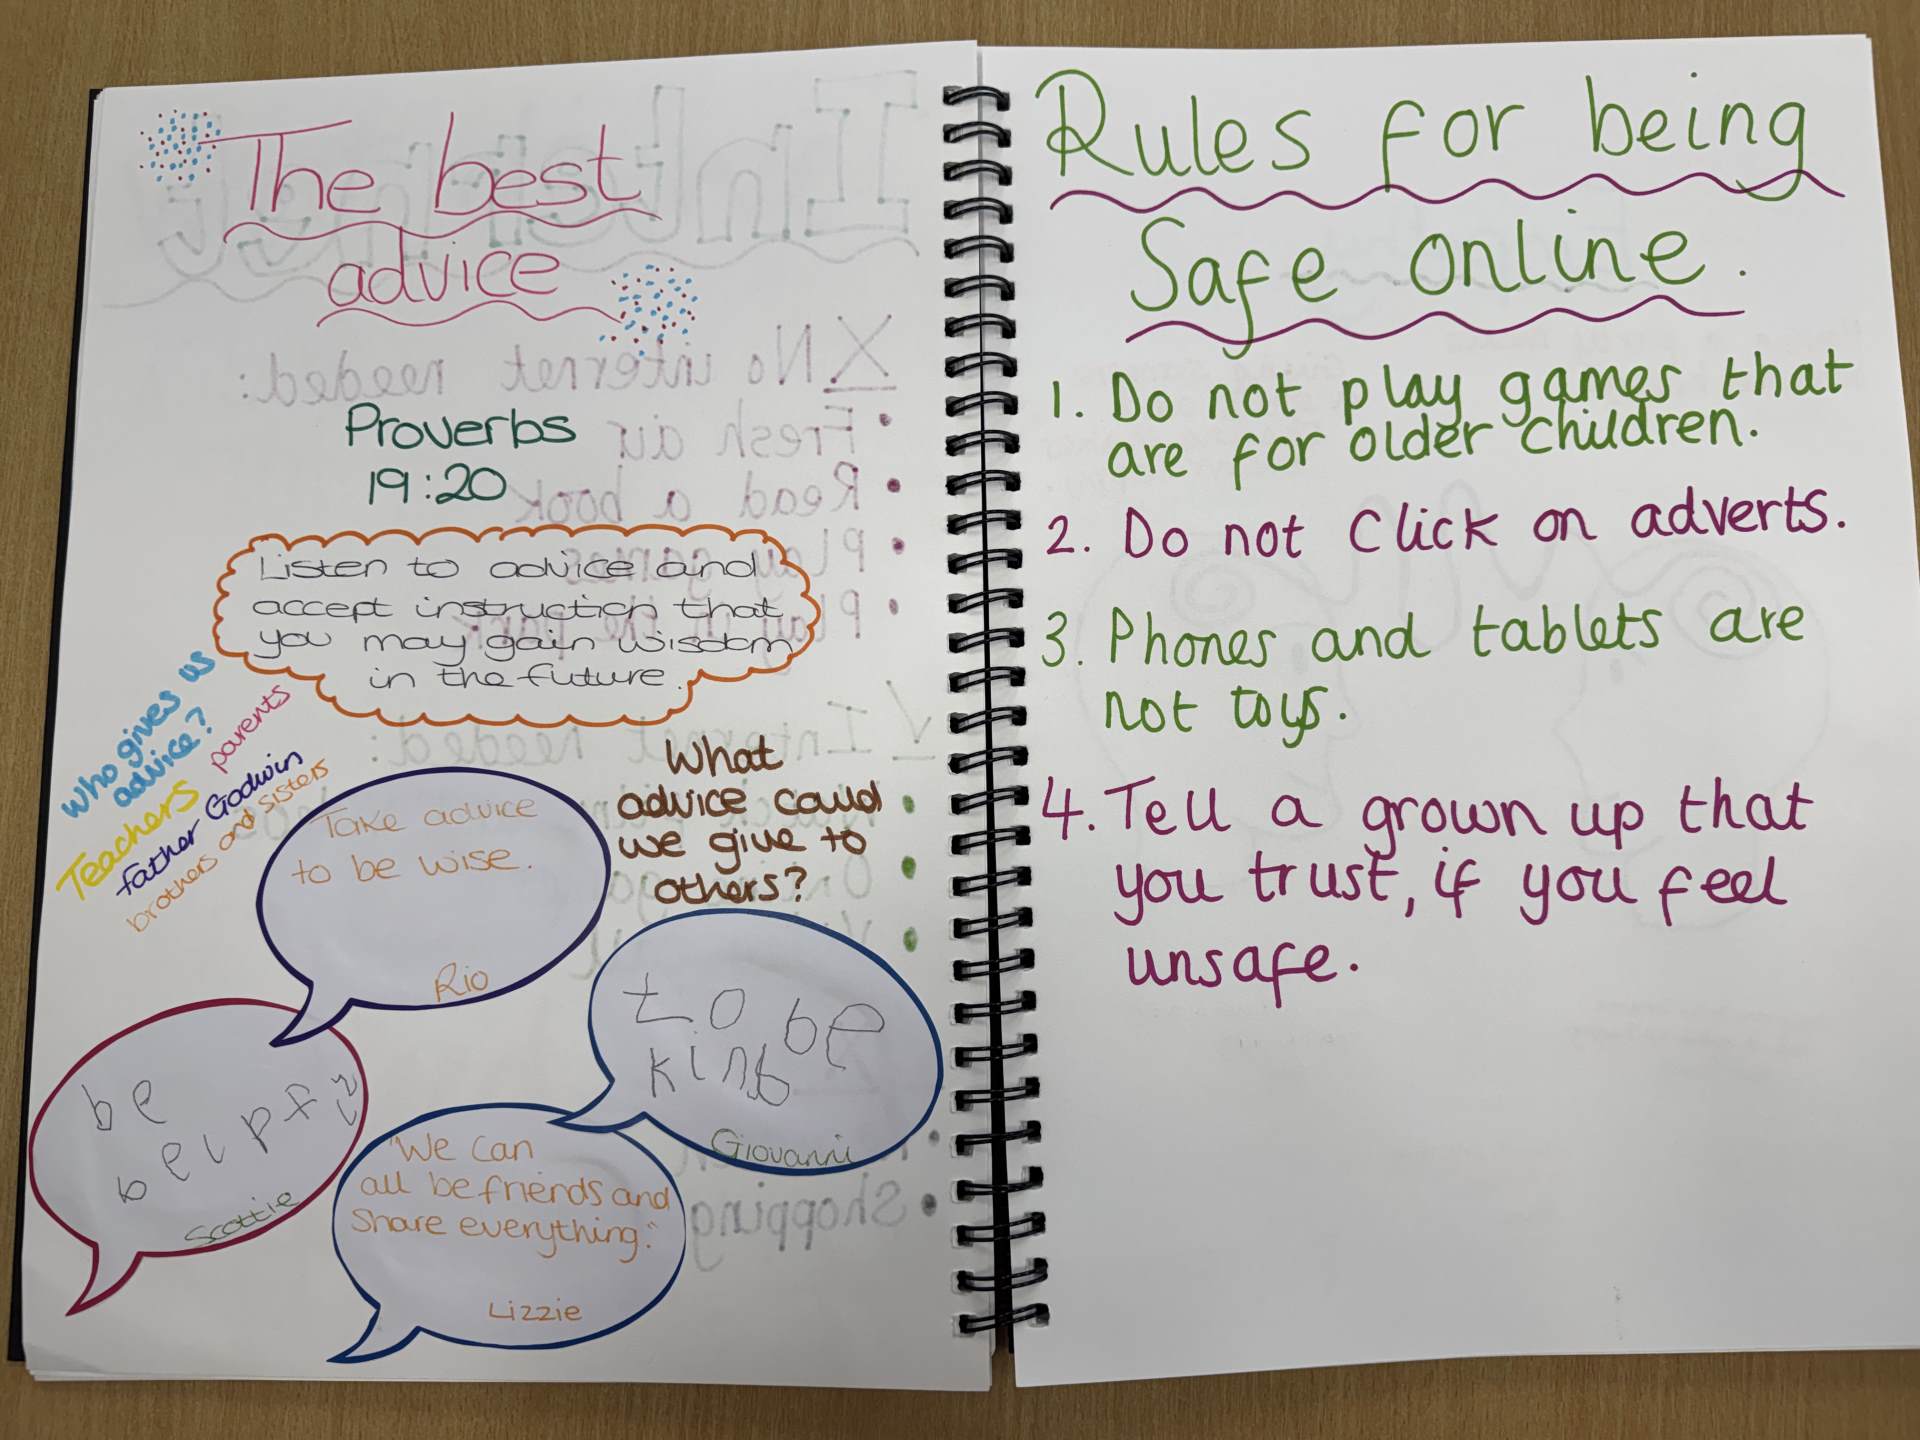 The best
advice
Proverbs
19:20
Listen to advice and
accept instruction that
you may gain wisdom
in the future.
Who gives us
advice?
parents
Teachers
Father Godwin
brothers and sisters
What
advice could
we give to
others?
Take advice
to be wise.
Rio
to be
kind
Giovanni
be
Scottie
"We can
all be friends and
Share everything."
Lizzie
Rules for being
Safe online.
1. Do not play games that
are for older children.
2. Do not Click on adverts.
3. Phones and tablets are
not toys.
4. Tell a grown up that
you trust, if you feel
unsafe.
Internet
X No internet needed:
• Fresh air
• Read a book
• Play games
• Play in the park
√ Internet needed:
• Shopping